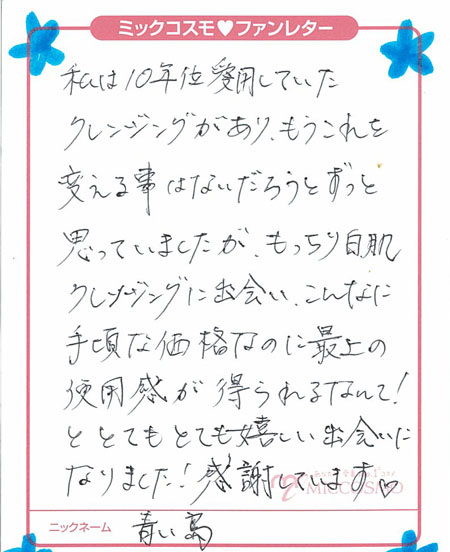 ミックコスモ♥ファンレター
私は10年位愛用していた
クレンジングがあり、もうこれを
変える事はないだろうとずっと
思っていましたが、もっちり白肌
クレンジングに出会い、こんなに
手頃な価格なのに最上の
使用感が得られるなんて!
ととてもとても嬉しい出会いに
なりました!感謝しています♡
MICCOSMO
ニックネーム 青い鳥